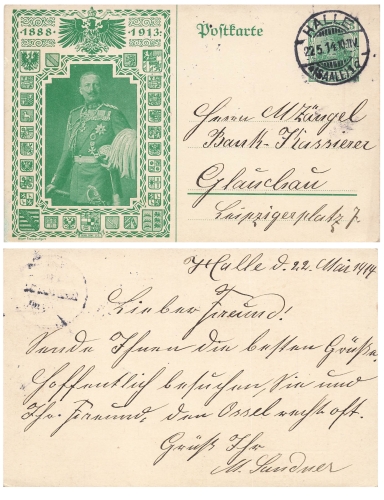 1888 - 1913
Postkarte
HALLE
22.5.14.10-11V.
(SAALE)
Herrn M Zängel
Bank-Kassierer
Glauchau
Leipzigerplatz 7.
Halle d. 22. Mai 1914
Lieber Freund!
Sende Ihnen die besten Grüße.
Hoffentlich besuchen Sie und
Ihr Freund, den Ossel recht oft.
Grüß Ihr
M. Sandner